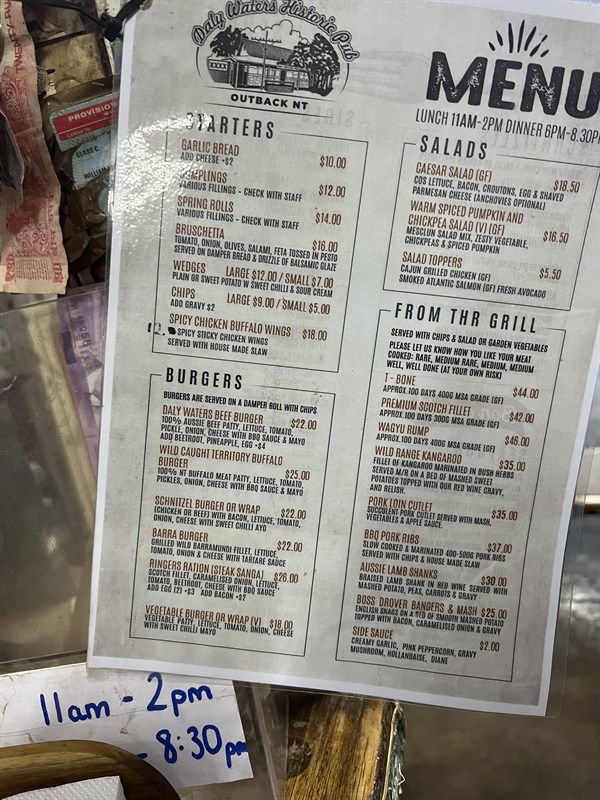 Daly Waters Historic Pub
OUTBACK NT
MENU
LUNCH 11AM-2PM DINNER 6PM-8.30P
STARTERS
GARLIC BREAD $10.00
ADD CHEESE +$2
VARIOUS FILLINGS - CHECK WITH STAFF $12.00
SPRING ROLLS
VARIOUS FILLINGS - CHECK WITH STAFF $14.00
BRUSCHETTA $16.00
TOMATO, ONION, OLIVES, SALAMI, FETA TOSSED IN PESTO
SERVED ON DAMPER BREAD & DRIZZLE OF BALSAMIC GLAZE
WEDGES LARGE $12.00 / SMALL $7.00
PLAIN OR SWEET POTATO W SWEET CHILLI & SOUR CREAM
CHIPS LARGE $9.00 / SMALL $5.00
ADD GRAVY $2
SPICY CHICKEN BUFFALO WINGS $18.00
12. SPICY STICKY CHICKEN WINGS
SERVED WITH HOUSE MADE SLAW
BURGERS
BURGERS ARE SERVED ON A DAMPER ROLL WITH CHIPS
DALY WATERS BEEF BURGER $22.00
100% AUSSIE BEEF PATTY, LETTUCE, TOMATO,
PICKLE, ONION, CHEESE WITH BBQ SAUCE & MAYO
ADD BEETROOT, PINEAPPLE, EGG +$4
WILD CAUGHT TERRITORY BUFFALO
BURGER $25.00
100% NT BUFFALO MEAT PATTY, LETTUCE, TOMATO,
PICKLES, ONION, CHEESE WITH BBQ SAUCE & MAYO
SCHNITZEL BURGER OR WRAP $22.00
(CHICKEN OR BEEF) WITH BACON, LETTUCE, TOMATO,
ONION, CHEESE WITH SWEET CHILLI AYO
BARRA BURGER $22.00
GRILLED WILD BARRAMUNDI FILLET, LETTUCE,
TOMATO, ONION & CHEESE WITH TARTARE SAUCE
RINGERS RATION (STEAK SANGA) $26.00
SCOTCH FILLET, CARAMELISED ONION, LETTUCE,
TOMATO, BEETROOT, CHEESE WITH BBQ SAUCE
ADD EGG (2) +$3 ADD BACON +$2
VEGETABLE BURGER OR WRAP (V) $18.00
VEGETABLE PATTY, LETTUCE, TOMATO, ONION, CHEESE
WITH SWEET CHILLI MAYO
SALADS
CAESAR SALAD (GF) $18.50
COS LETTUCE, BACON, CROUTONS, EGG & SHAVED
PARMESAN CHEESE (ANCHOVIES OPTIONAL)
WARM SPICED PUMPKIN AND
CHICKPEA SALAD (V) (GF) $16.50
MESCLUN SALAD MIX, ZESTY VEGETABLE,
CHICKPEAS & SPICED PUMPKIN
SALAD TOPPERS $5.50
CAJUN GRILLED CHICKEN (GF)
SMOKED ATLANTIC SALMON (GF) FRESH AVOCADO
FROM THR GRILL
SERVED WITH CHIPS & SALAD OR GARDEN VEGETABLES
PLEASE LET US KNOW HOW YOU LIKE YOUR MEAT
COOKED: RARE, MEDIUM RARE, MEDIUM, MEDIUM
WELL, WELL DONE (AT YOUR OWN RISK)
T - BONE $44.00
APPROX.100 DAYS 400G MSA GRADE (GF)
PREMIUM SCOTCH FILLET $42.00
APPROX.100 DAYS 300G MSA GRADE (GF)
WAGYU RUMP $46.00
APPROX.100 DAYS 400G MSA GRADE (GF)
WILD RANGE KANGAROO $35.00
FILLET OF KANGAROO MARINATED IN BUSH HERBS
SERVED M/R ON A BED OF MASHED SWEET
POTATOES TOPPED WITH OUR RED WINE GRAVY,
AND RELISH.
PORK LOIN CUTLET $35.00
SUCCULENT PORK CUTLET SERVED WITH MASH,
VEGETABLES & APPLE SAUCE.
BBQ PORK RIBS $37.00
SLOW COOKED & MARINATED 400-500G PORK RIBS
SERVED WITH CHIPS & HOUSE MADE SLAW
AUSSIE LAMB SHANKS $30.00
BRAISED LAMB SHANK IN RED WINE SERVED WITH
MASHED POTATO, PEAS, CARROTS & GRAVY
BOSS DROVER BANGERS & MASH $25.00
ENGLISH SNAGS ON A BED OF SMOOTH MASHED POTATO
TOPPED WITH BACON, CARAMELISED ONION & GRAVY
SIDE SAUCE $2.00
CREAMY GARLIC, PINK PEPPERCORN, GRAVY
MUSHROOM, HOLLANDAISE, DIANE
PROVISIO
CLASS C
WILLIAM
TWENTY
11am - 2pm
- 8:30pm